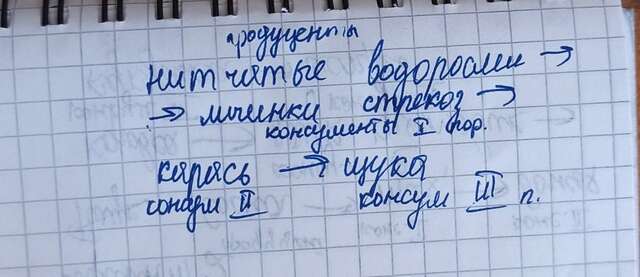 продуценты
нитчатые водоросли →
→ личинки стрекоз →
консументы I пор.
карась → щука
консум II консум III п.